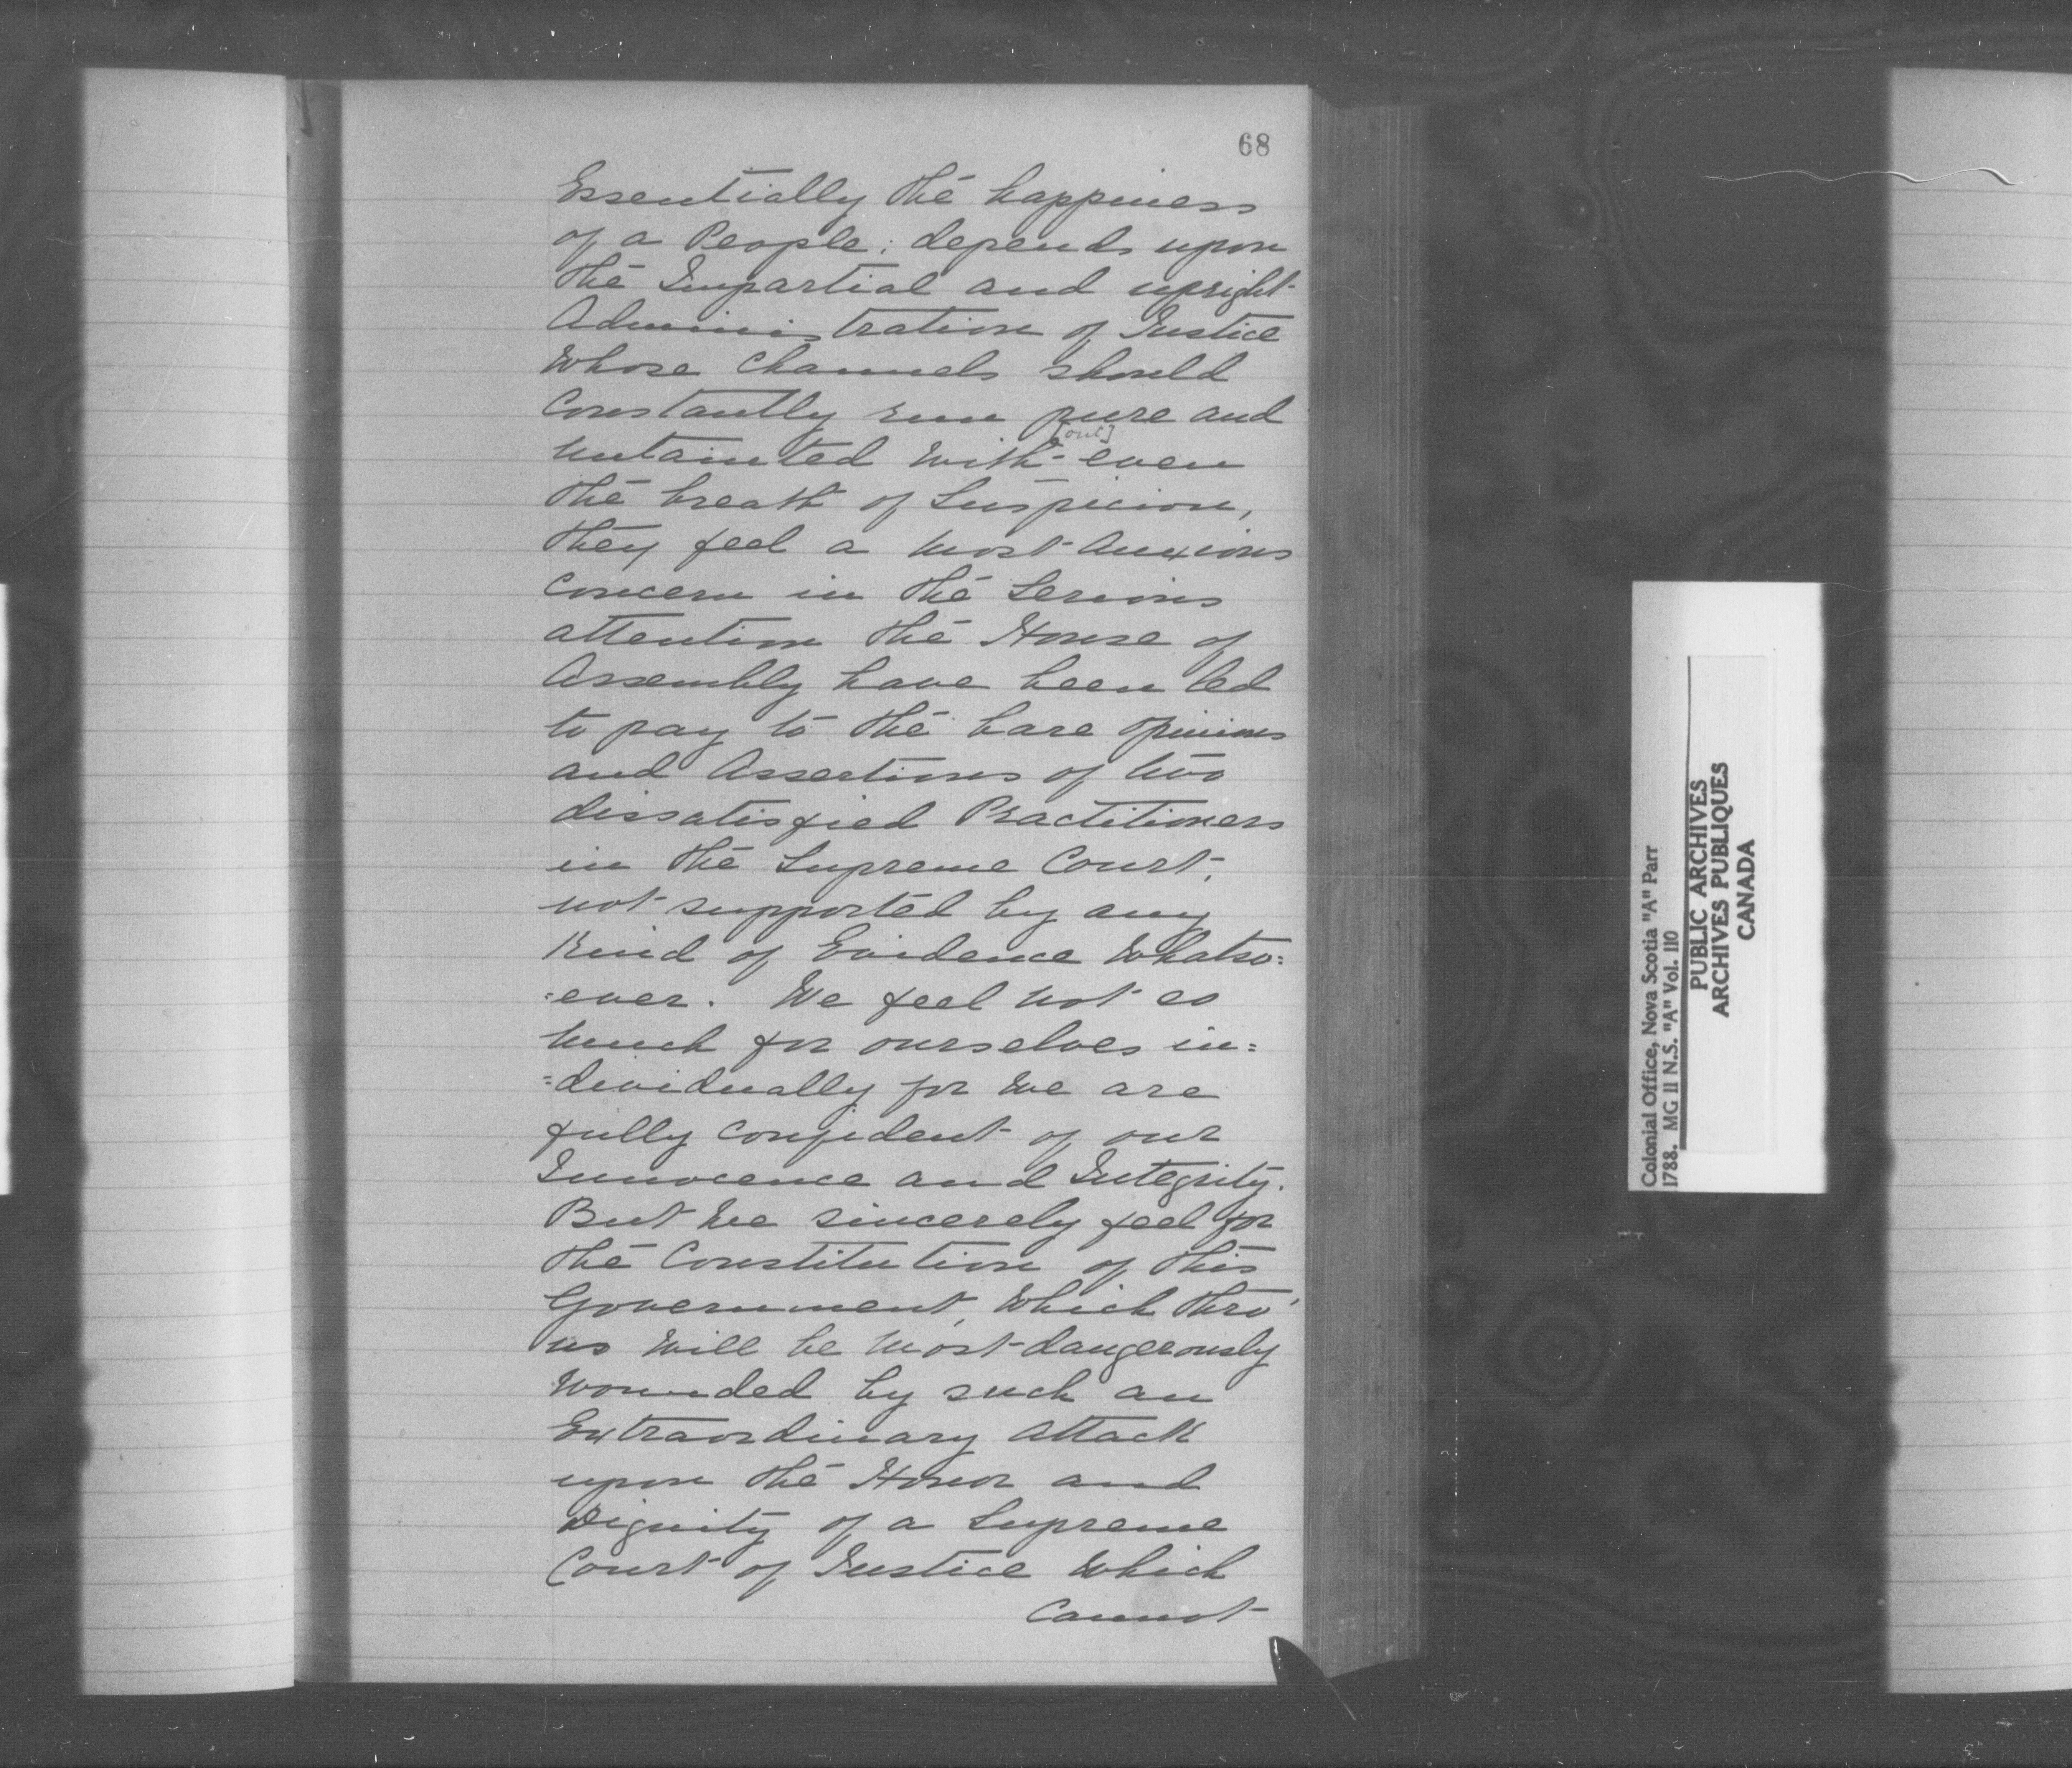 68
Essentially the happiness
of a People: depends upon
the Impartial and upright
Administration of Justice
Whose Channels should
Constantly run pure and
[out]
untainted with even
the breath of Suspicion,
they feel a most Anxious
Concern in the Serious
attention the House of
Assembly have been led
to pay to the bare Opinions
and Assertions of two
dissatisfied Practitioners
in the Supreme Court,
not supported by any
Kind of Evidence Whatso=
=ever. We feel not so
much for ourselves in=
=dividually for we are
fully Confident of our
Innocence and Integrity.
But we sincerely feel for
the Constitution of this
Government, Which thro'
us will be most dangerously
wounded by such an
Extraordinary Attack
upon the Honor and
Dignity of a Supreme
Court of Justice Which
Cannot
Colonial Office, Nova Scotia "A" Parr
1788. MG 11 N.S. "A" Vol. 110
PUBLIC ARCHIVES
ARCHIVES PUBLIQUES
CANADA